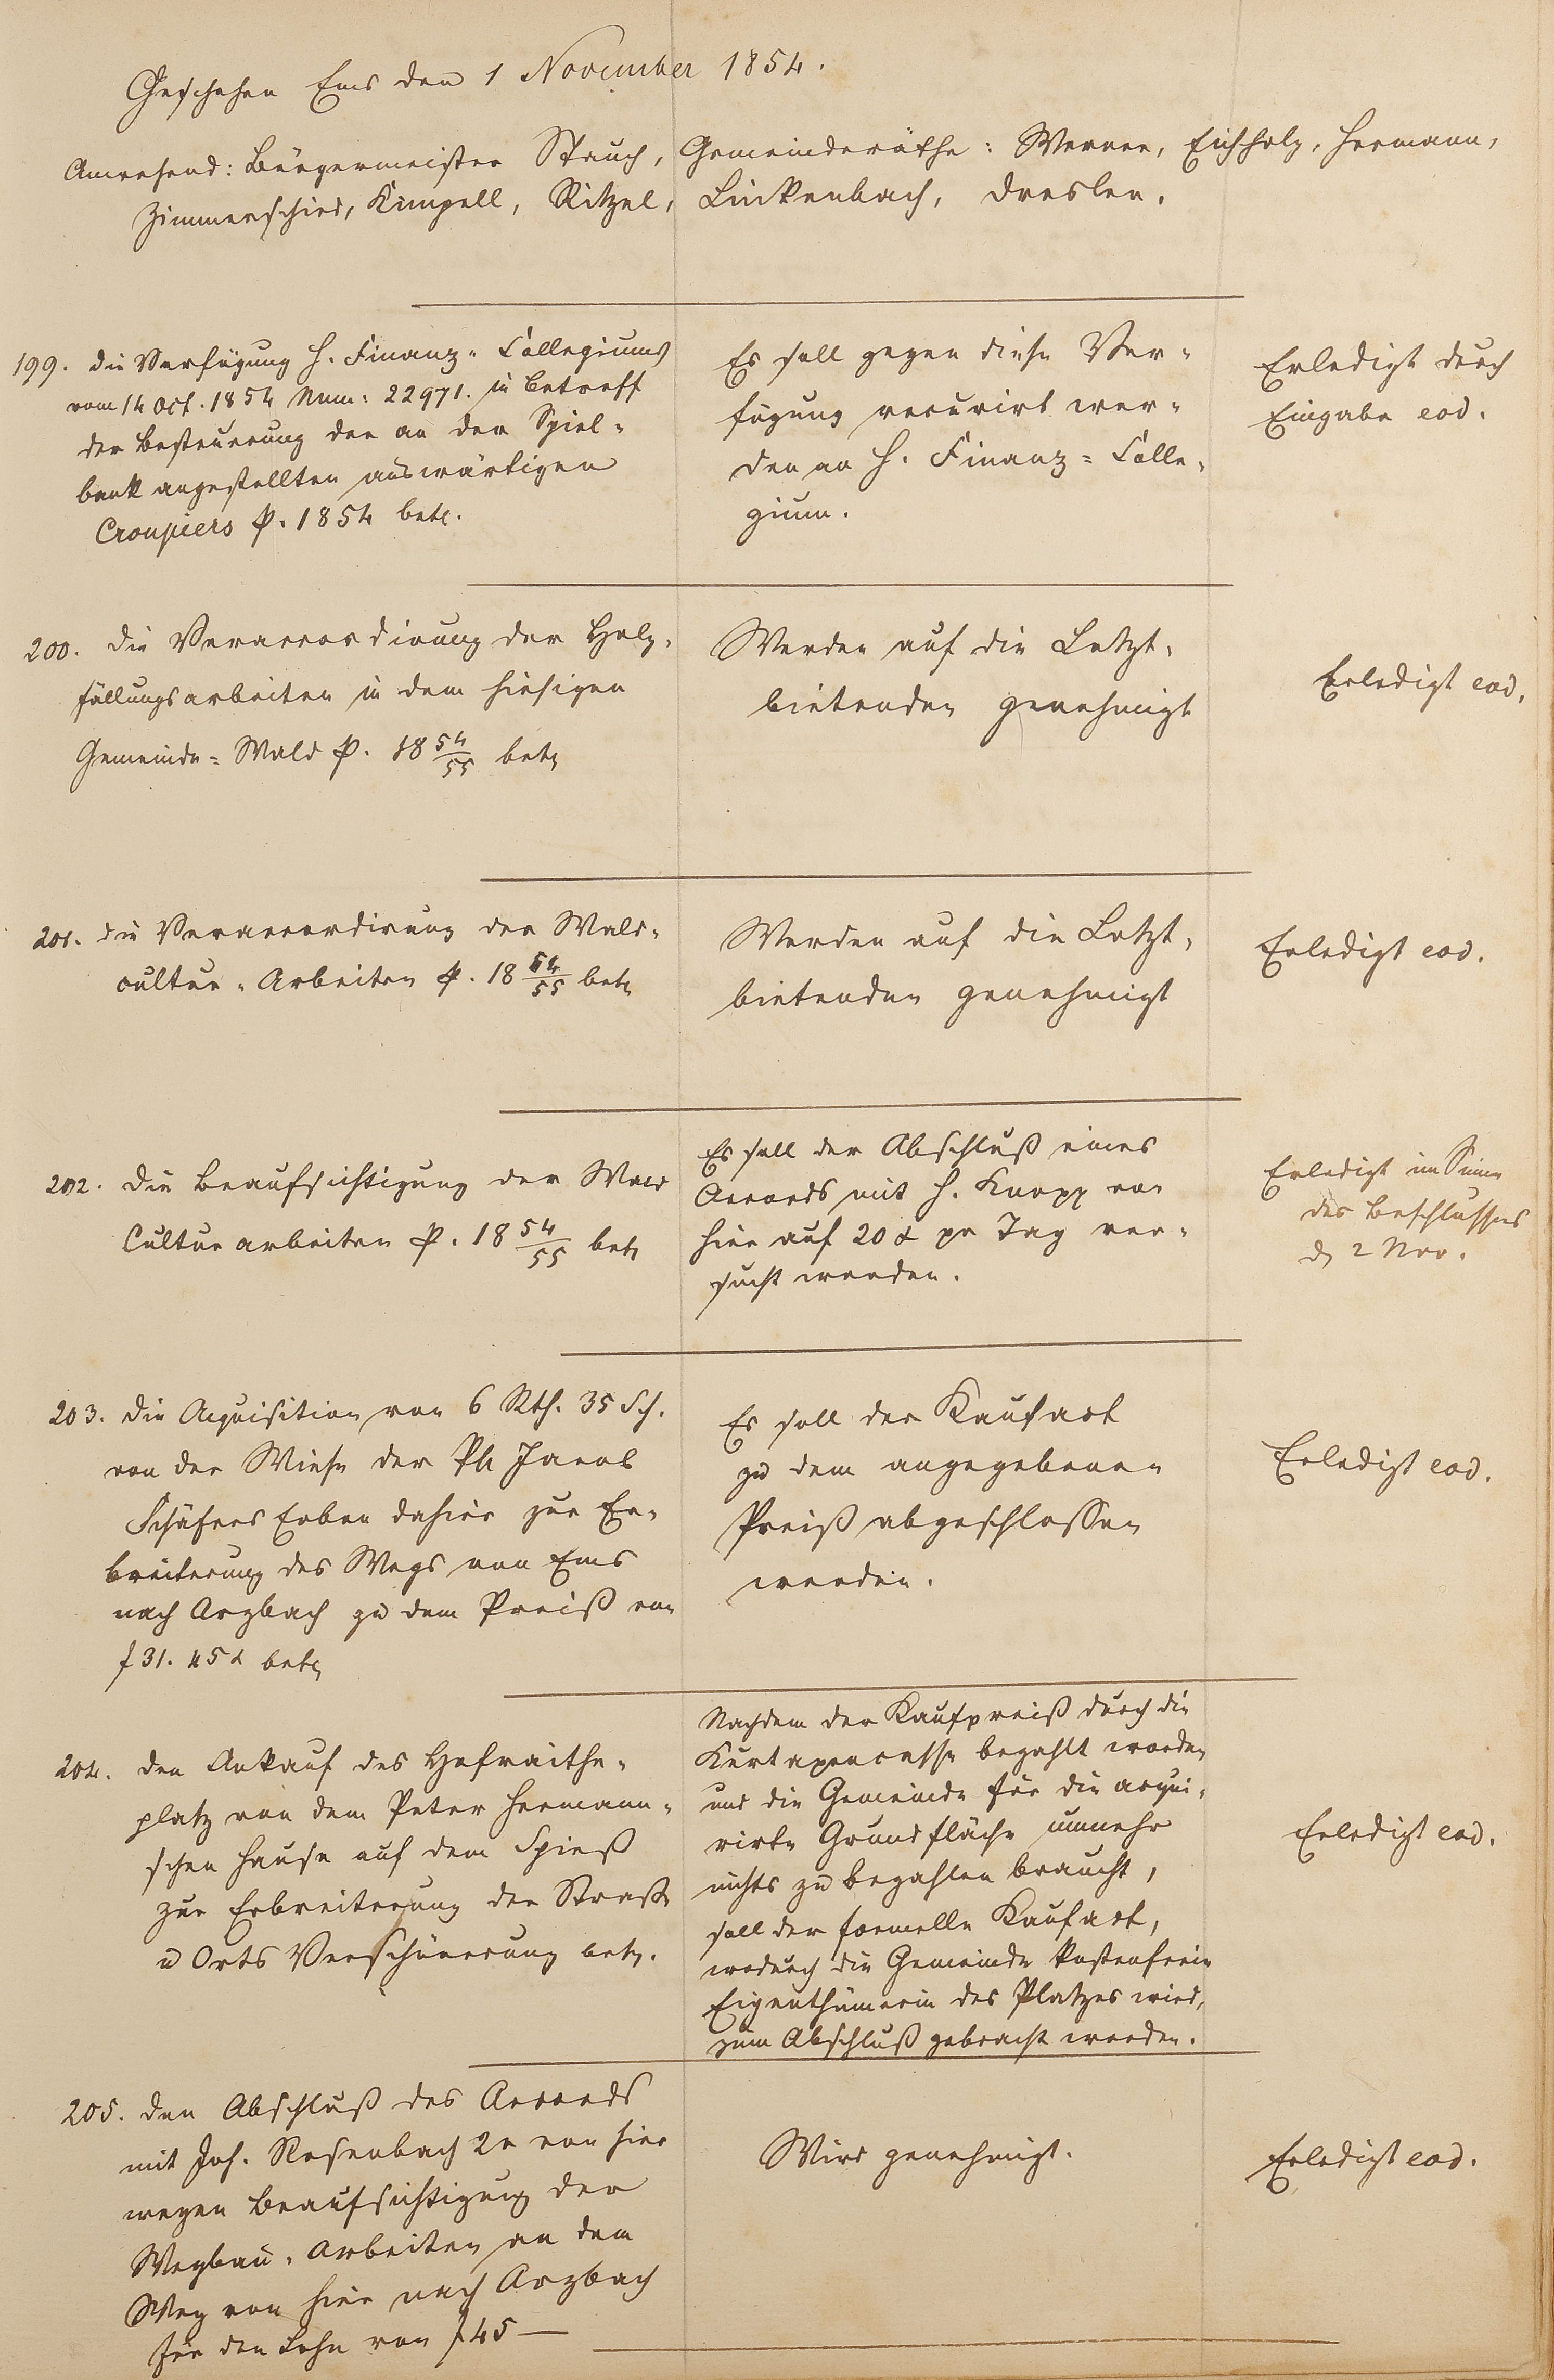 Geschehen Ems den 1 November 1854.
Anwesend: Bürgermeister Spruch, Gemeinderäthe: Werner, Eichholz, Hermann,
Zimmerschied, Kimpell, Ritzel, Linkenbach, Dresler.
199. die Verfügung H. Finanz-Collegiums
vom 14 Oct. 1854 Num: 22971. in betreff
der Besteuerung der an der Spiel-
bank angestellten auswärtigen
Croupiers p. 1854 betr.
Es soll gegen diese Ver-
fügung recurirt wer-
den an H. Finanz-Colle-
gium.
Erledigt durch
Eingabe eod.
200. die Veraccordirung der Holz-
fällungsarbeiten in dem hiesigen
Gemeinde-Wald p. 18 54/55 betr
Werden auf die Letzt-
bietenden genehmigt
Erledigt eod.
201. die Veraccordirung der Wald-
cultur-Arbeiten p. 18 54/55 betr
Werden auf die Letzt-
bietenden genehmigt
Erledigt eod.
202. die Beaufsichtigung der Wald
Culturarbeiten p. 18 54/55 betr
Es soll der Abschluß eines
Accords mit H. Knopp von
hier auf 20 x pr Tag ver-
sucht werden.
Erledigt im Sinne
des Beschlusses
d. 2 Nov.
203. die Acquisition von 6 Rth. 35 Sch.
von der Wiese der Ph Jacob
Schäfers Erben dahier zur Er-
breiterung des Wegs von Ems
nach Arzbach zu dem Preiß von
f 31. 45 x betr
Es soll der Kaufact
zu dem angegebenen
Preiß abgeschlossen
werden.
Erledigt eod.
204. den Ankauf des Hofraithe-
platz von dem Peter Hermann-
schen Hause auf dem Spieß
zur Erbreiterung der Straße
u Orts Verschönerung betr.
Nachdem der Kaufpreiß durch die
Kurtaxencasse bezahlt worden
und die Gemeinde für die acqui-
rirte Grundfläche nunmehr
nichts zu bezahlen braucht,
soll der formelle Kaufact,
wodurch die Gemeinde kostenfreie
Eigenthümerin des Platzes wird,
zum Abschluß gebracht werden.
Erledigt eod.
205. den Abschluß des Accords
mit Joh. Rosenbach 2r von hier
wegen Beaufsichtigung der
Wegbau-Arbeiten an dem
Weg von hier nach Arzbach
für den Lohn von f 45 —
Wird genehmigt.
Erledigt eod.